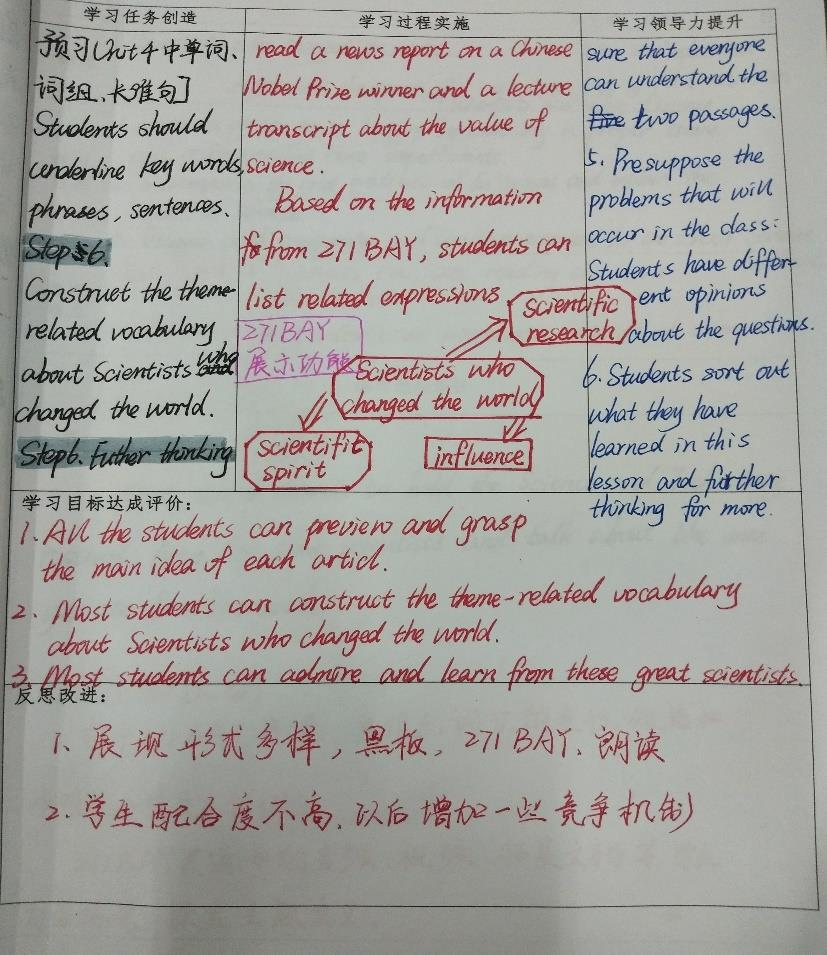 学习任务创造
学习过程实施
学习领导力提升
预习Unit 4中单词、
词组、长难句]
Students should
underline key words,
phrases, sentences.
Step 6.
Construct the theme-
related vocabulary
about Scientists who
changed the world.
Step6. Futher thinking
read a news report on a Chinese
Nobel Prize winner and a lecture
transcript about the value of
science.
Based on the information
from 271 BAY, students can
list related expressions.
271 BAY
展示功能
Scientific
research
Scientists who
changed the world
Scientifit
spirit
influence
sure that everyone
can understand the
two passages.
5. Presuppose the
problems that will
occur in the class:
Students have differ-
ent opinions
about the questions.
6. Students sort out
what they have
learned in this
lesson and further
thinking for more.
学习目标达成评价:
1. All the students can preview and grasp
the main idea of each articl.
2. Most students can construct the theme-related vocabulary
about Scientists who changed the world.
3. Most students can admire and learn from these great scientists.
反思改进:
1、展现形式多样，黑板，271 BAY、朗读
2. 学生配合度不高、以后增加一些竞争机制